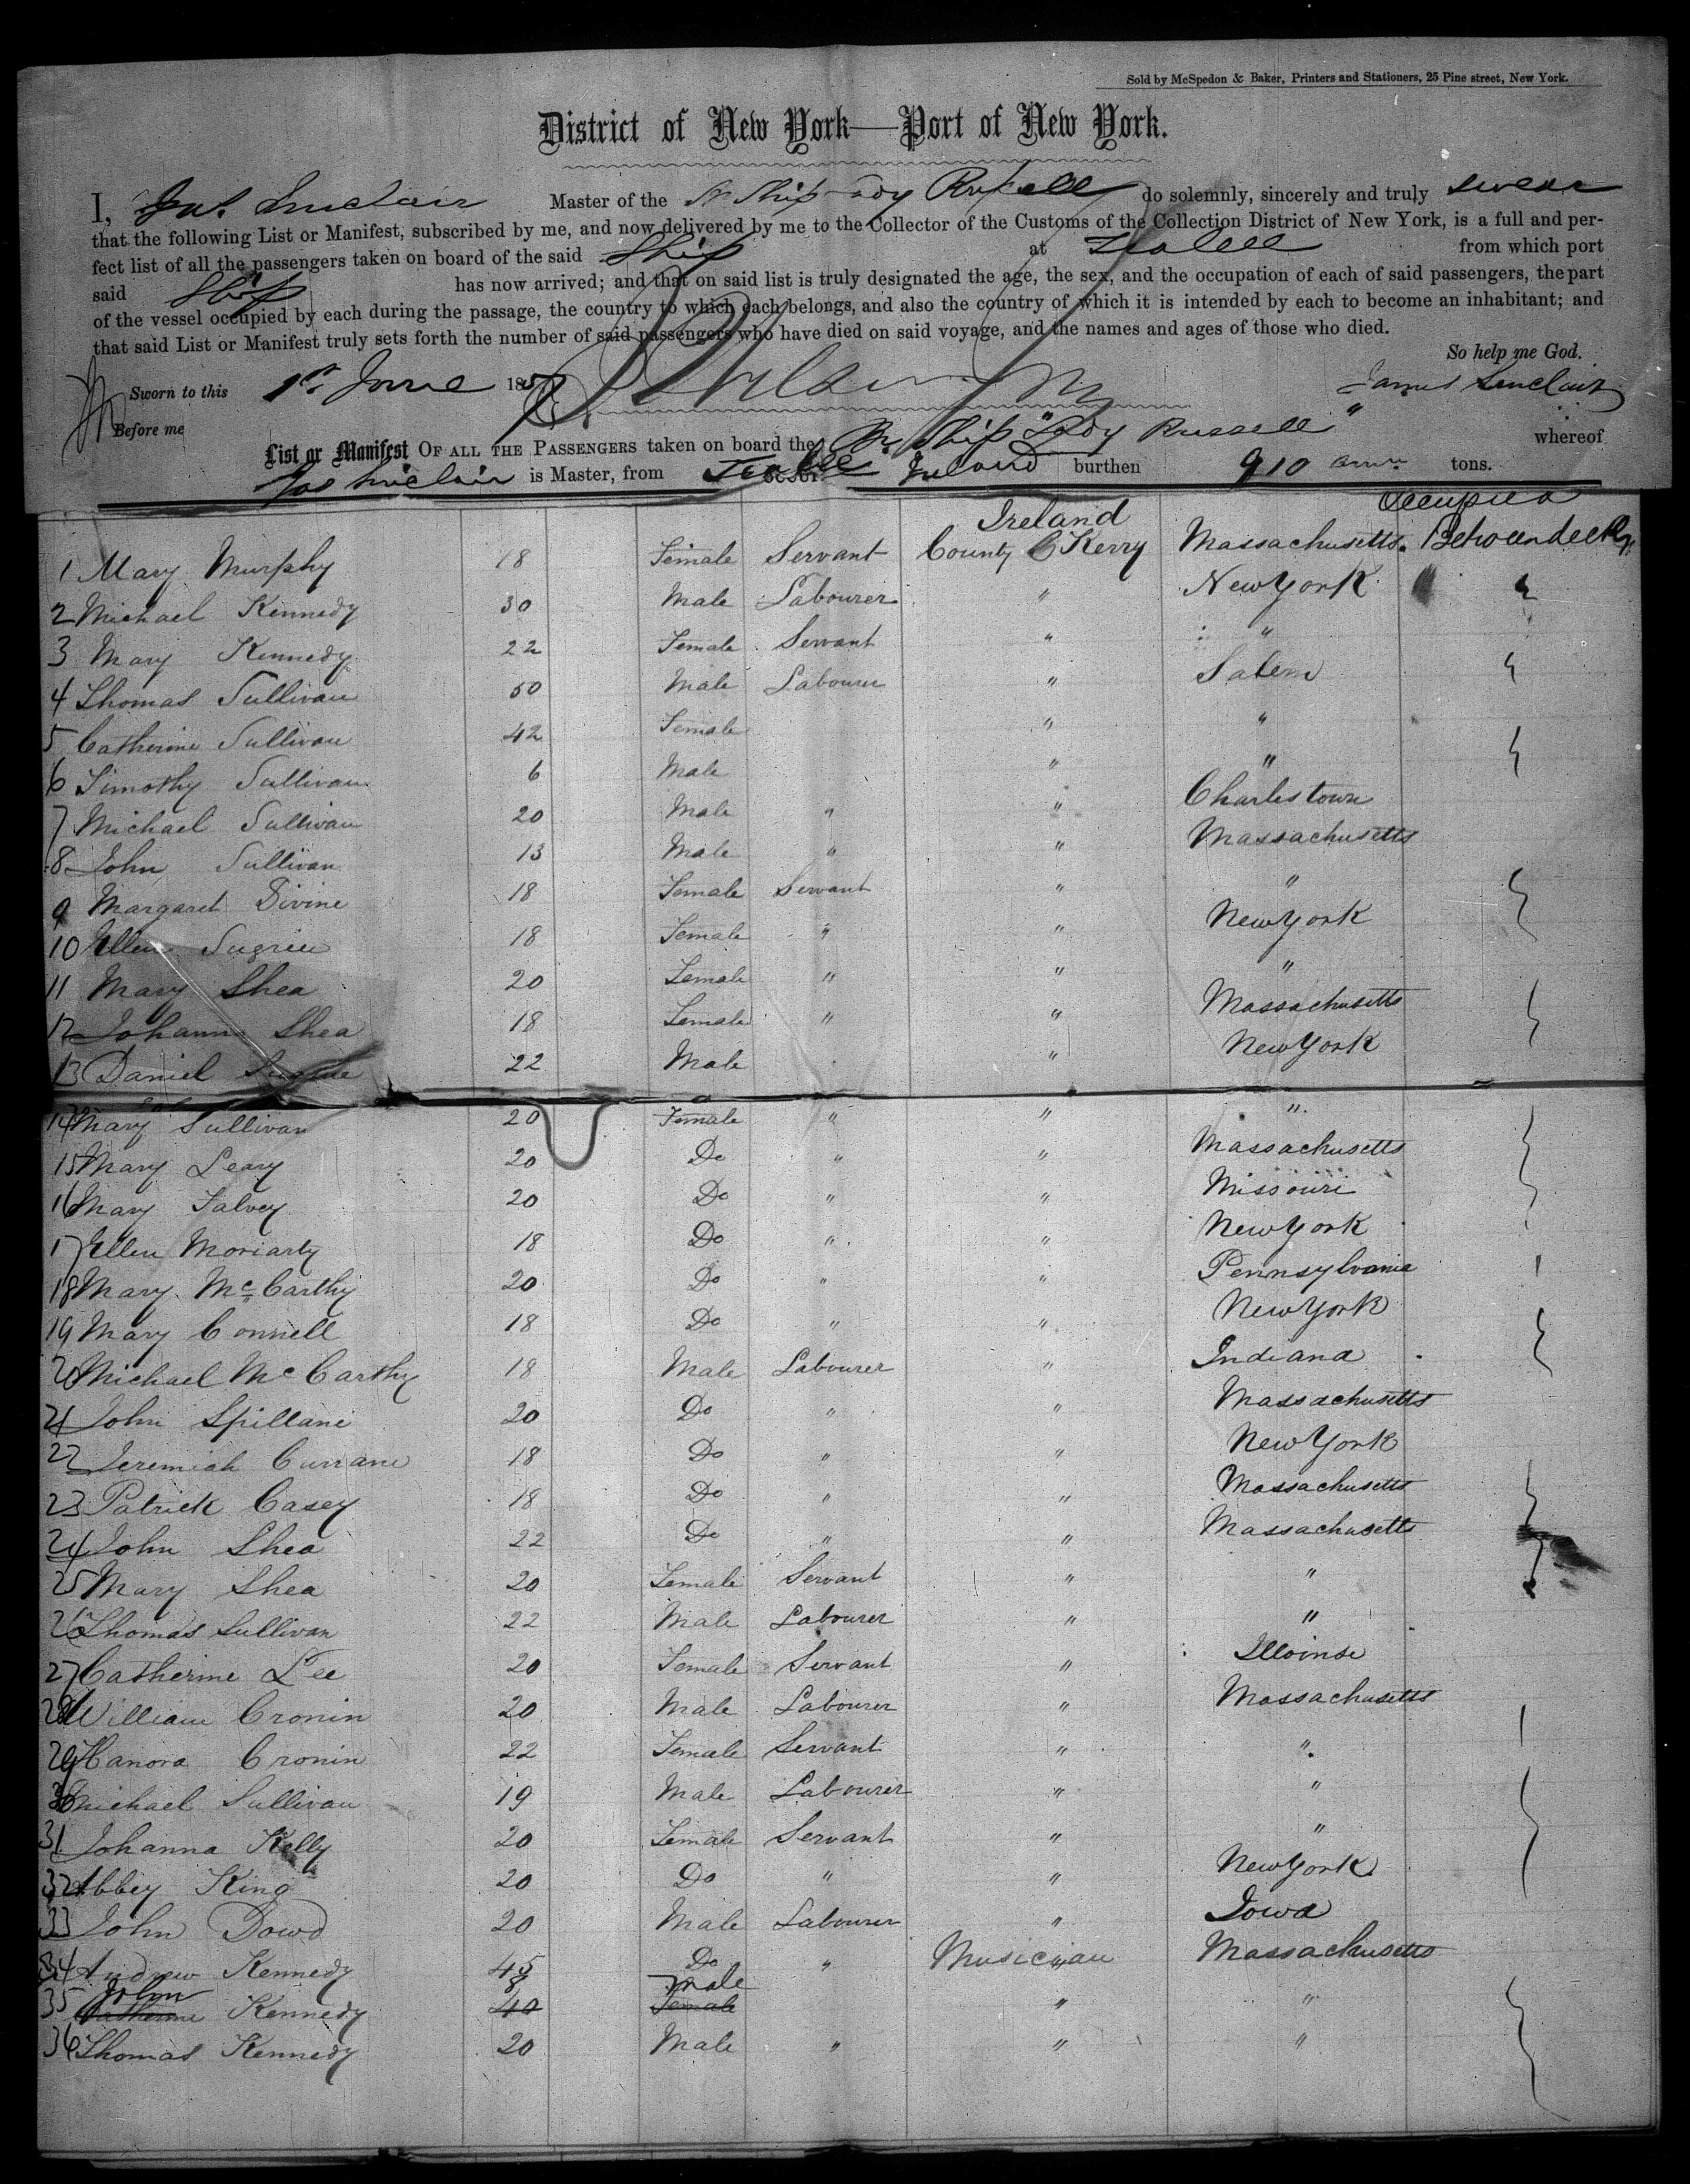 Sold by McSpedon & Baker, Printers and Stationers, 25 Pine street, New York.
District of New York—Port of New York.
I, Jas. Sinclair Master of the Br Ship Lady Russell do solemnly, sincerely and truly swear
that the following List or Manifest, subscribed by me, and now delivered by me to the Collector of the Customs of the Collection District of New York, is a full and per-
fect list of all the passengers taken on board of the said Ship at Tralee from which port
said Ship has now arrived; and that on said list is truly designated the age, the sex, and the occupation of each of said passengers, the part
of the vessel occupied by each during the passage, the country to which each belongs, and also the country of which it is intended by each to become an inhabitant; and
that said List or Manifest truly sets forth the number of said passengers who have died on said voyage, and the names and ages of those who died.
So help me God.
Sworn to this 1st June 1857 James Sinclair
Before me
List or Manifest OF ALL THE PASSENGERS taken on board the Br. Ship "Lady Russell" whereof
Jas Sinclair is Master, from Tralee Ireland burthen 910 tons.
Occupied
Ireland
1 Mary Murphy 18 Female Servant County Kerry Massachusetts. Between decks
2 Michael Kennedy 30 Male Labourer " New York "
3 Mary Kennedy 22 Female Servant " "
4 Thomas Sullivan 50 Male Labourer " Salem
5 Catherine Sullivan 42 Female " "
6 Timothy Sullivan 6 Male " "
7 Michael Sullivan 20 Male " " Charlestown
8 John Sullivan 13 Male " " Massachusetts
9 Margaret Divine 18 Female Servant " "
10 Ellen Sugrue 18 Female " " New York
11 Mary Shea 20 Female " " "
12 Johanna Shea 18 Female " " Massachusetts
13 Daniel Sugrue 22 Male " New York
14 Mary Sullivan 20 Female " " "
15 Mary Leary 20 Do " " Massachusetts
16 Mary Falvey 20 Do " " Missouri
17 Ellen Moriarty 18 Do " " New York
18 Mary McCarthy 20 Do " " Pennsylvania
19 Mary Connell 18 Do " " New York
20 Michael McCarthy 18 Male Labourer " Indiana
21 John Spillane 20 Do " " Massachusetts
22 Jeremiah Currane 18 Do " " New York
23 Patrick Casey 18 Do " " Massachusetts
24 John Shea 22 Do " " Massachusetts
25 Mary Shea 20 Female Servant " "
26 Thomas Sullivan 22 Male Labourer " "
27 Catherine Lee 20 Female Servant " Illoinse
28 William Cronin 20 Male Labourer " Massachusetts
29 Hanora Cronin 22 Female Servant " "
30 Michael Sullivan 19 Male Labourer " "
31 Johanna Kelly 20 Female Servant " "
32 Abbey King 20 Do " " New York
33 John Dowd 20 Male Labourer " Iowa
34 Andrew Kennedy 45 Do " Musician " Massachusetts
John 8 Male
35 Catherine Kennedy 40 Female " "
36 Thomas Kennedy 20 Male " " "